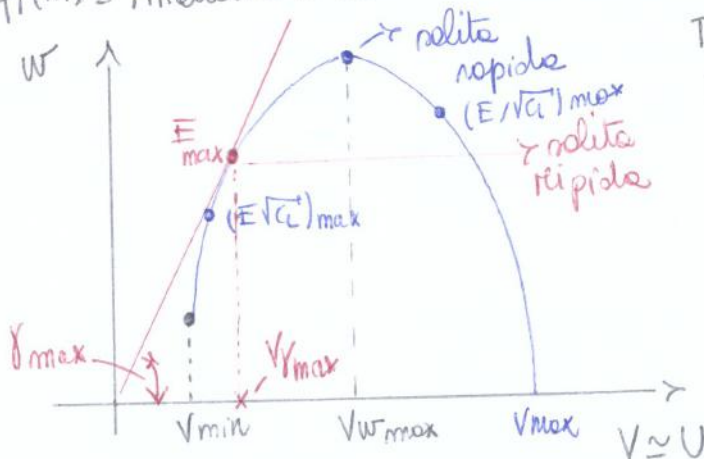 W
salita
rapida
(E/√CL)max
Emax
salita
ripida
(E√CL)max
γmax
Vγmax
Vmin
VWmax
Vmax
V≃U